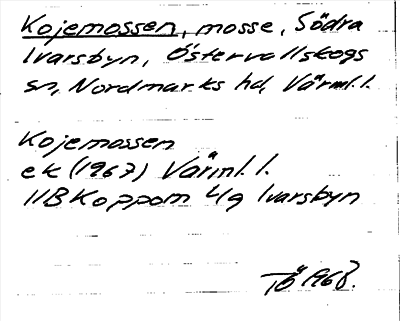 Kojemossen, mosse, Södra
Ivarsbyn, Östervallskogs
sn, Nordmarks hd, Värml.l.
Kojemossen
ek (1967) Värml. l.
11B Koppom 4/g Ivarsbyn
TÖ 1968.